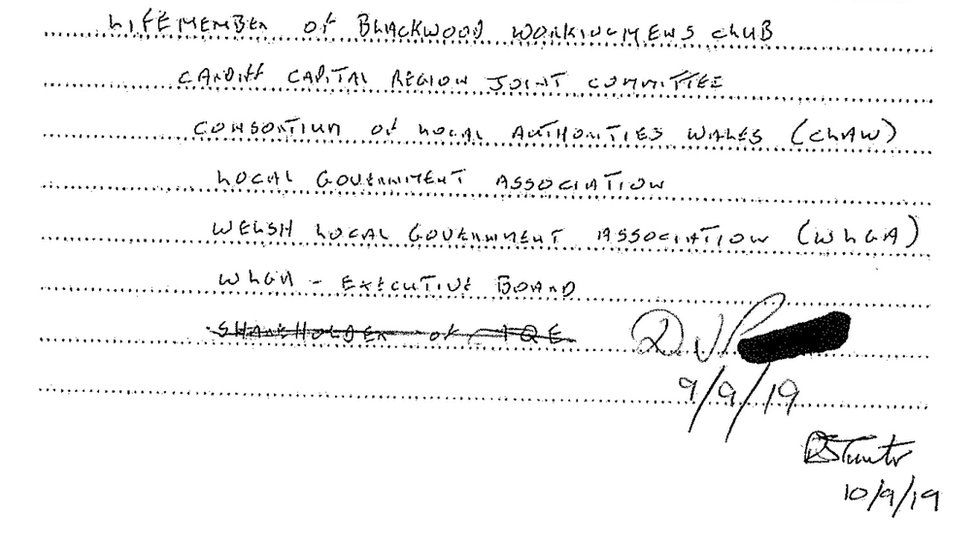 LIFEMEMBER OF BLACKWOOD WORKINGMENS CLUB
CARDIFF CAPITAL REGION JOINT COMMITTEE
CONSORTIUM OF LOCAL AUTHORITIES WALES (CLAW)
LOCAL GOVERNMENT ASSOCIATION
WELSH LOCAL GOVERNMENT ASSOCIATION (WLGA)
WLGA - EXECUTIVE BOARD
SHAREHOLDER OF IQE
D.V.P
9/9/19
10/9/19